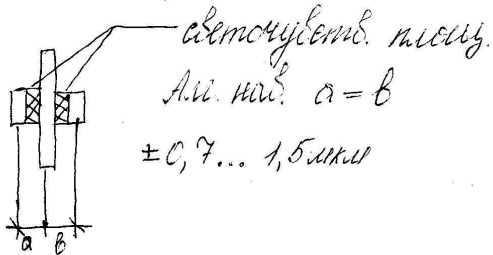 светочувств. площ.
Ам. нав. a = в
±0,7... 1,5мкм
a в